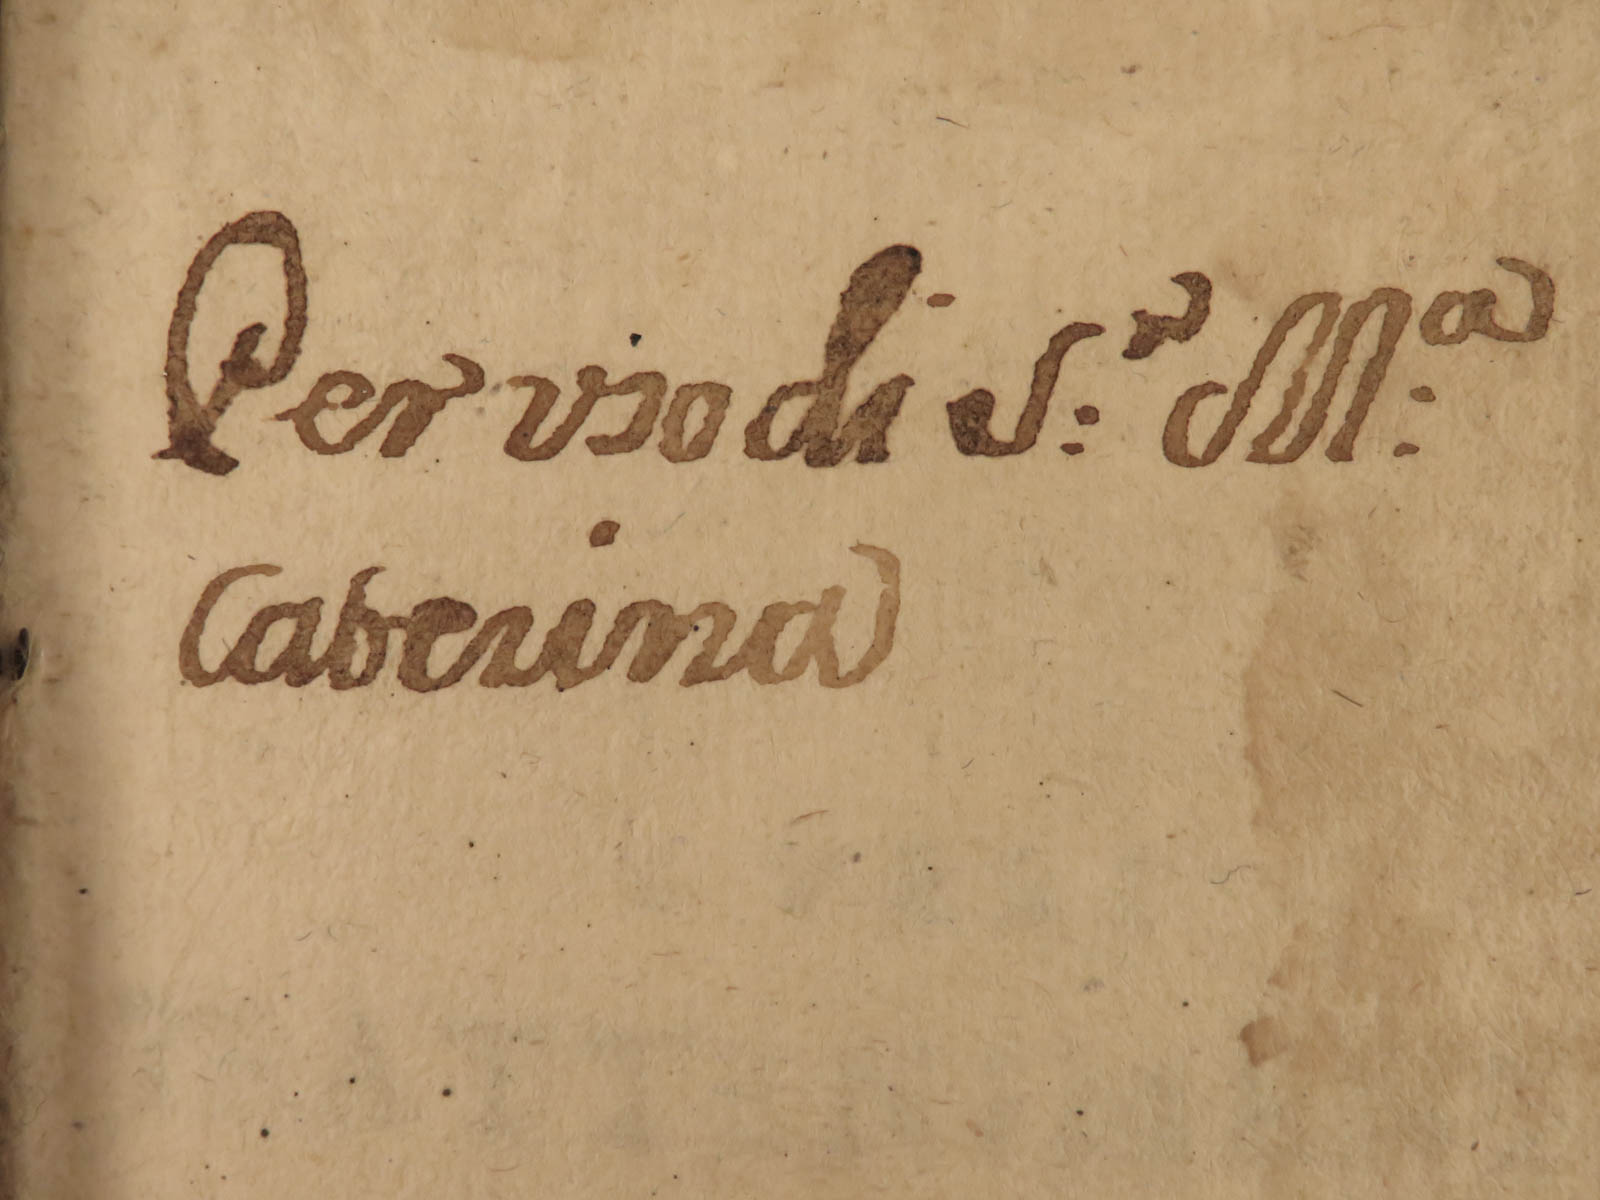 Per uso di S.r M.a
Caterina